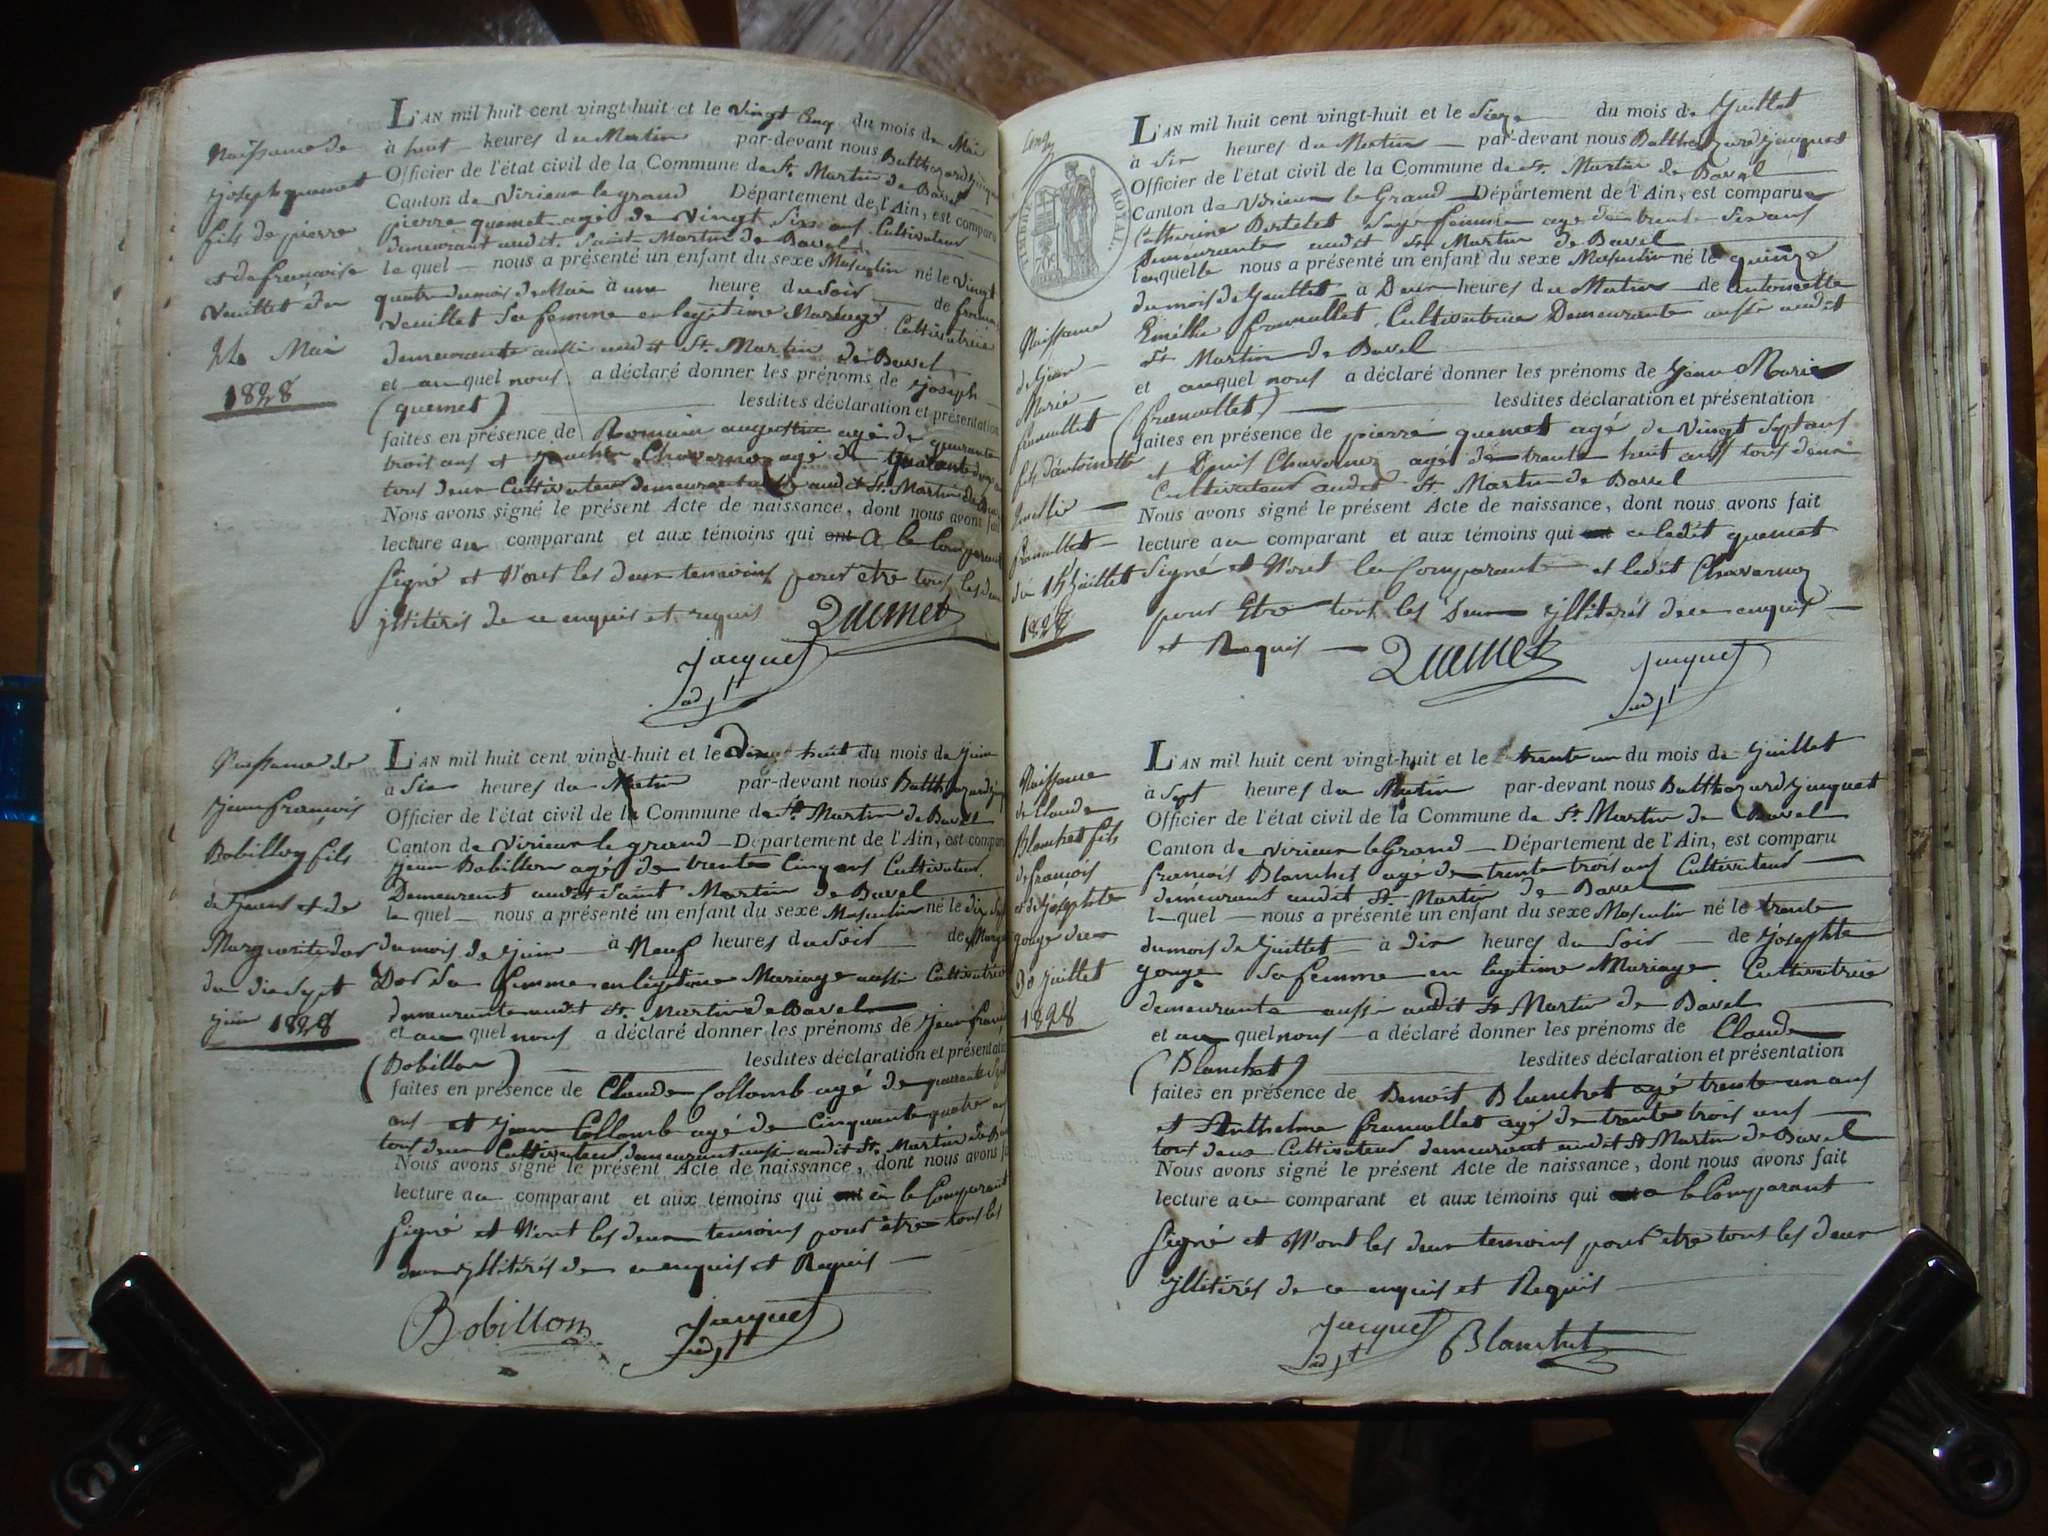 Naissance de
joseph quemet
fils de pierre
et de françoise
Veuillet du
24 Mai
1828
L'AN mil huit cent vingt-huit et le Vingt Cinq du mois de Mai
à huit heures du Matin par-devant nous Balthazard jacquet
Officier de l'état civil de la Commune de St. Martin de Bavel
Canton de Virieux le grand Département de l'Ain, est comparu
pierre quemet agé de Vingt Six ans Cultivateur
demeurant audit Saint Martin de Bavel
lequel nous a présenté un enfant du sexe Masculin né le Vingt
quatre du mois de Mai à une heure du Soir de
Veuillet Sa femme en legitime Mariage Cultivatrice
demeurante aussi audit St. Martin de Bavel
et auquel nous a déclaré donner les prénoms de joseph
(quemet) lesdites déclaration et présentation
faites en présence de Romain augustin agé de quarante
trois ans et Chavernoz agé de
tous deux Cultivateurs demeurant audit St. Martin de
Nous avons signé le présent Acte de naissance, dont nous avons fait
lecture au comparant et aux témoins qui ont A le Comparant
Signé et N'ont les deux temoins pour être tous les deux
jllitérés de ce enquis et requis
Quemet
jacquet
adjt
Naissance de
jean françois
Bobillon fils
de jean et de
Marguerite dor
du dix Sept
juin 1828
L'AN mil huit cent vingt-huit et le Dix huit du mois de juin
à Six heures du Matin par-devant nous Balthazard
Officier de l'état civil de la Commune de St. Martin de Bavel
Canton de Virieux le grand Département de l'Ain, est comparu
jean Bobillon agé de trente Cinq ans Cultivateur
Demeurant audit Saint Martin de Bavel
lequel nous a présenté un enfant du sexe Masculin né le dix Sept
du mois de juin à Neuf heures du Soir de
Dor Sa femme en legitime Mariage aussi Cultivatrice
demeurante audit St. Martin de Bavel
et auquel nous a déclaré donner les prénoms de jean
(Bobillon) lesdites déclaration et présentation
faites en présence de Claude Collomb agé de quarante Sept
ans et jean Collomb agé de Cinquante quatre ans
tous deux Cultivateurs demeurant aussi audit St. Martin de
Nous avons signé le présent Acte de naissance, dont nous avons
lecture au comparant et aux témoins qui ont à le Comparant
Signé et N'ont les deux temoins pour être tous les
deux jllitérés de ce enquis et Requis
Bobillon jacquet
adjt
TIMBRE ROYAL
70c
Naissance
de jean
Marie
framullet
fils d'antoinette
Emélie
framullet
du 15 juillet
1828
L'AN mil huit cent vingt-huit et le Seize du mois de Juillet
à Six heures du Matin par-devant nous Balthazard jacquet
Officier de l'état civil de la Commune de St. Martin de Bavel
Canton de Virieux le Grand Département de l'Ain, est comparue
Catherine Bertelet Sage femme agé de trente Six ans
Demeurante audit St. Martin de Bavel
laquelle nous a présenté un enfant du sexe Masculin né le quinze
du mois de Juillet à Deux heures du Matin de antoinette
Emélie framullet Cultivatrice Demeurante aussi audit
St. Martin de Bavel
et auquel nous a déclaré donner les prénoms de jean Marie
(framullet) lesdites déclaration et présentation
faites en présence de pierre quemet agé de Vingt Sept ans
et Denis Chavernoz agé de trente huit ans tous deux
Cultivateurs audit St. Martin de Bavel
Nous avons signé le présent Acte de naissance, dont nous avons fait
lecture au comparant et aux témoins qui ont a ledit quemet
Signé et N'ont la Comparante et ledit Chavernoz
pour Etre tous les Deux jllitérés de ce enquis
et Requis
Quemet jacquet
adjt
Naissance
de Claude
Blanchet fils
de françois
et de joséphte
gouge du
30 juillet
1828
L'AN mil huit cent vingt-huit et le trente un du mois de Juillet
à Sept heures du Matin par-devant nous Balthazard jacquet
Officier de l'état civil de la Commune de St. Martin de Bavel
Canton de Virieux le Grand Département de l'Ain, est comparu
françois Blanchet agé de trente trois ans Cultivateur
demeurant audit St. Martin de Bavel
lequel nous a présenté un enfant du sexe Masculin né le trente
du mois de Juillet à dix heures du Soir de Josephte
gouge Sa femme en legitime Mariage Cultivatrice
demeurante aussi audit St Martin de Bavel
et auquel nous a déclaré donner les prénoms de Claude
(Blanchet) lesdites déclaration et présentation
faites en présence de Benoit Blanchet agé trente un ans
et Anthelme framullet agé de trente trois ans
tous deux Cultivateurs demeurant audit St Martin de Bavel
Nous avons signé le présent Acte de naissance, dont nous avons fait
lecture au comparant et aux témoins qui ont a le Comparant
Signé et N'ont les deux temoins pour être tous les deux
jllitérés de ce enquis et Requis
jacquet Blanchet
adjt